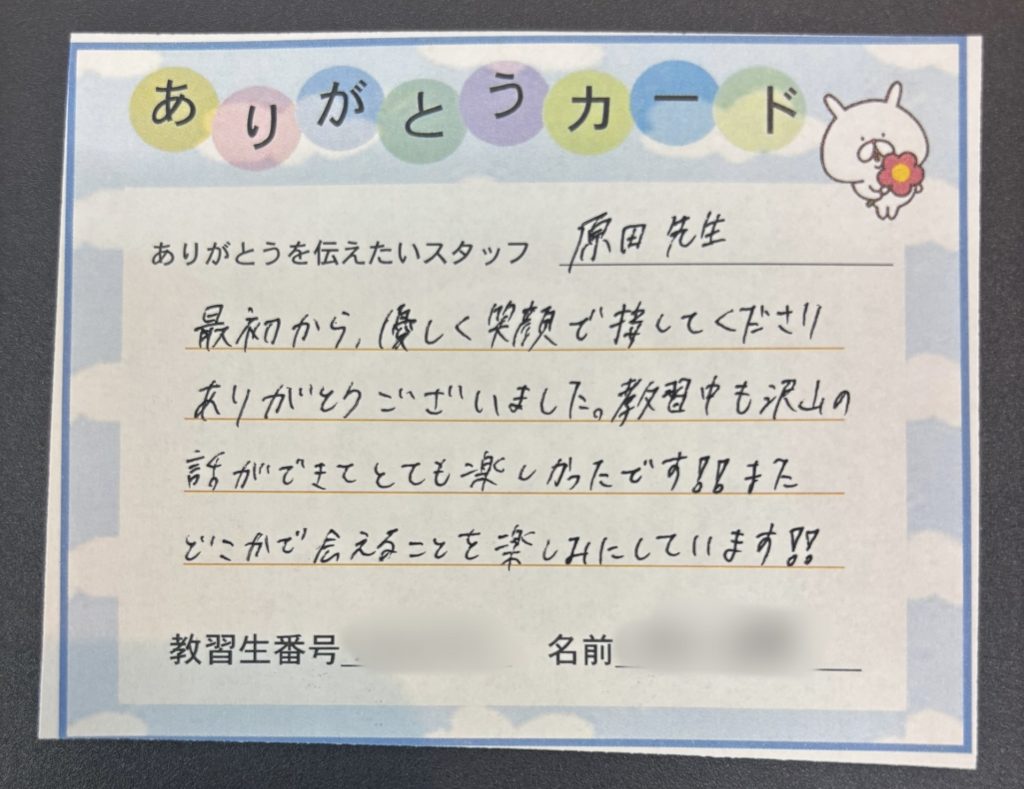 ありがとうカード
ありがとうを伝えたいスタッフ 原田先生
最初から、優しく笑顔で接してくださり
ありがとうございました。教習中も沢山の
話ができてとても楽しかったです!!また
どこかで会えることを楽しみにしています!!
教習生番号 名前